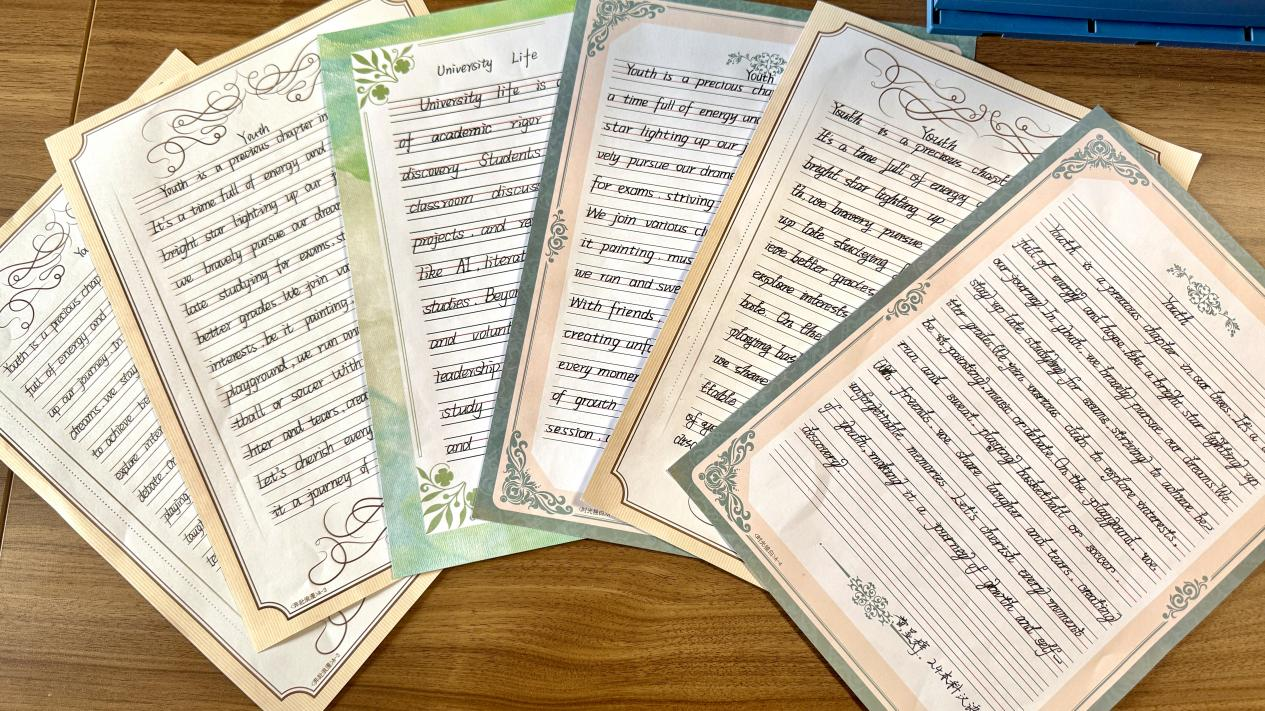 Youth
Youth is a precious chap
full of energy and
up our journey in
dreams. we stay
to achieve be
explore inte
debate. On
playing
laug
te
Youth
Youth is a precious chapter in
It's a time full of energy and
bright star lighting up our
we bravely pursue our dream
late studying for exams, st
better grades. We join va
interests, be it painting,
playground, we run and
tball or soccer With
hter and tears, crea
Let's cherish every
it a journey of
University Life
University life is
of academic rigor
discovery. Students
classroom discuss
projects, and re
like AI, literat
studies. Beyon
and volunt
leadership
study
and
Youth
Youth is a precious cha
a time full of energy and
star lighting up our
vely pursue our drame
for exams, striving
We join various cl
it painting, mus
we run and swe
With friends
creating unfo
every momen
of grouth
session,
Youth
Youth is a precious chapt
It's a time full of energy
bright star lighting up
th, we bravery pursue
up late studying
ieve better grades
explore interests
bate. On the
playing bas
we share
ttable
of yo
Youth
Youth is a precious chapter in our lives. It's a
full of energy and hope, like a bright star lighting up
our journey. In youth, we bravely pursue our dreams. We
stay up late studying for exams, striving to achieve be-
tter grades. We with various clubs to explore interests,
be it painting, music or debate. On the playground, we
run and sweat, playing basketball or soccer.
With friends, we share laughter and tears, creating
unforgettable memories. Let's cherish every moments
of youth, making it a journey of growth and self-
discovery
24本科汉语